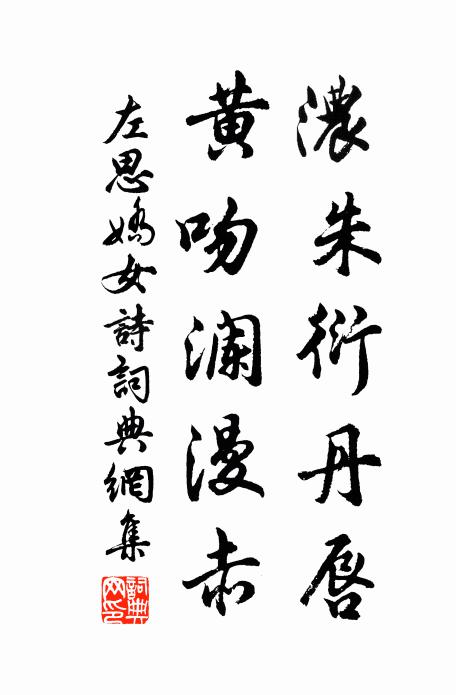 濃朱衍丹唇
黄吻瀾漫赤
左思嬌女詩詞典網集